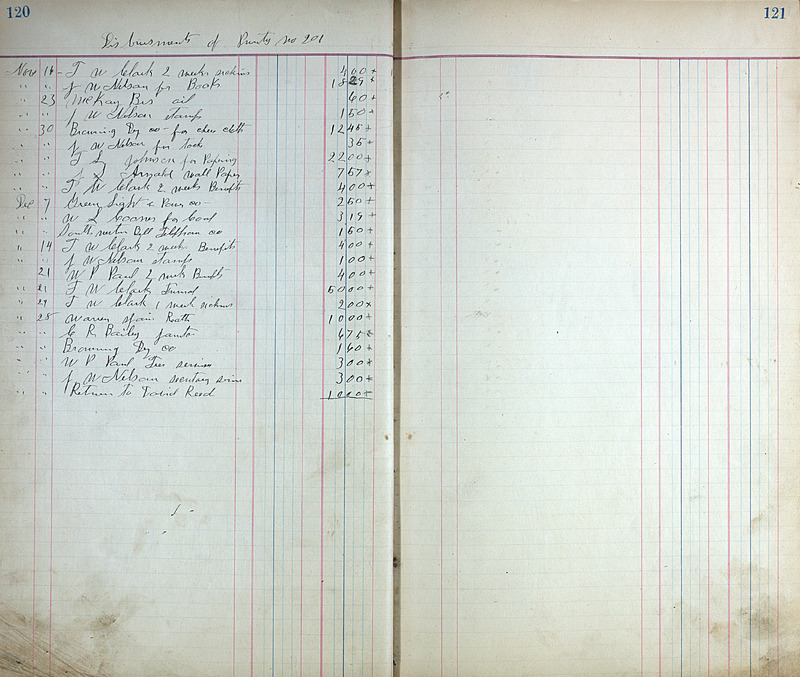 120
121
Disbursments of Purity no 201
Nov 16 - T W Clark 2 weeks sickness 4 00 +
" " J W Nelson for Books 18 29 +
" 23 McKay Bros oil 60 +
" " J W Nelson stamps 1 50 +
" 30 Browning Dry co - for chees cloth 12 45 +
" " J W Nelson for tools 35 +
" " Johnson for Papering 22 00 +
" " J L wall Paper 7 57 +
" " T W Clark 2 weeks Benefits 4 00 +
Dec 7 Green Light & Power co - 2 50 +
" " W L for Coal 3 19 +
" " Southwestern Bell Telephone co 1 50 +
" 14 T W Clark 2 weeks Benefits 4 00 +
" " J W Nelson stamps 1 00 +
21 W P Paul 2 weeks Benefits 4 00 +
" 21 T W Clark Funeral 50 00 +
" 29 T W Clark 1 week sickness 2 00 +
" 28 Warren 10 00 +
" " C R Bailey 6 75 +
" " Browning Dry co 1 60 +
" " W P Paul Fees services 3 00 +
" " J W Nelson secretary 3 00 +
" " Return to David Reed 10 00 +